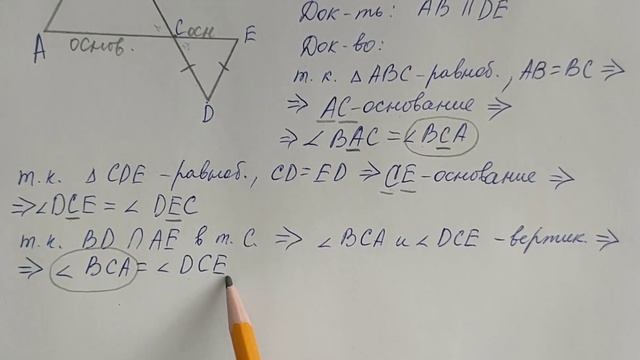 Док-ть: AB || DE
A основ. C осн E
D
Док-во:
т.к. △ABC-равноб., AB=BC ⇒
⇒ AC-основание ⇒
⇒ ∠BAC = ∠BCA
т.к. △ CDE -равноб., CD=ED ⇒ CE-основание ⇒
⇒ ∠DCE = ∠ DEC
т.к. BD ∩ AE в т. C. ⇒ ∠BCA и ∠DCE -вертик. ⇒
⇒ ∠ BCA = ∠ DCE